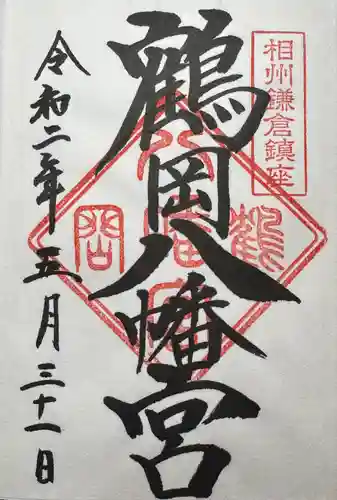 相州鎌倉鎮座
鶴岡八幡宮
令和二年五月三十一日